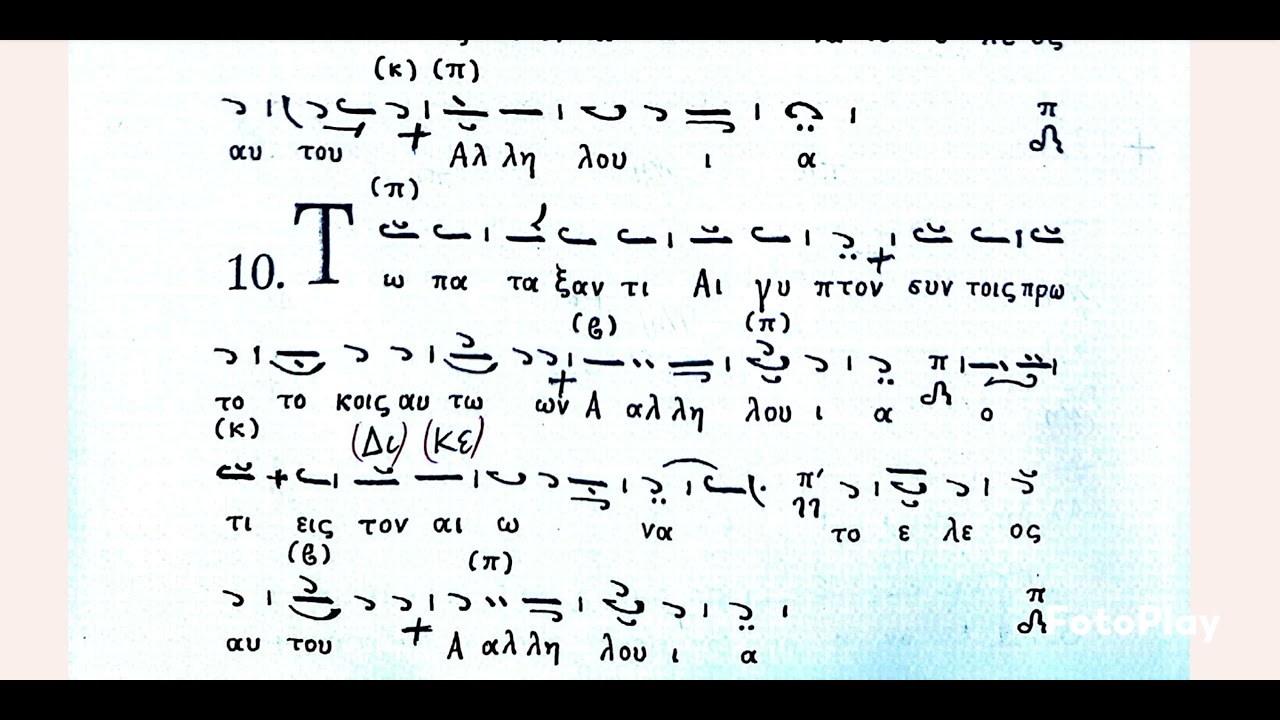 (κ) (π)
αυ του Αλ λη λου ι α π
(π)
10. Τ ω πα τα ξαν τι Αι γυ πτον συν τοις πρω
(β) (π)
το το κοις αυ τω ων Α αλ λη λου ι α π ο
(κ) (Δι) (Κε)
τι εις τον αι ω να π' το ε λε ος
(β) (π)
αυ του Α αλ λη λου ι α π
FotoPlay